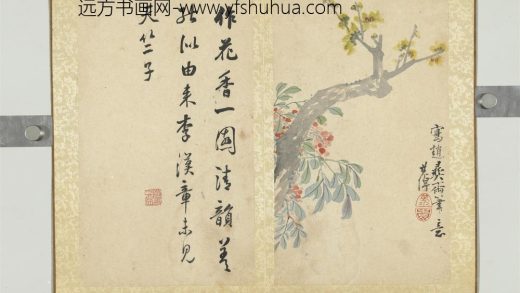 远方书画网-www.yfshuhua.com
作花香一国清韵羞
於似由来李漢章未見
天竺子
寫趙彝齋筆意